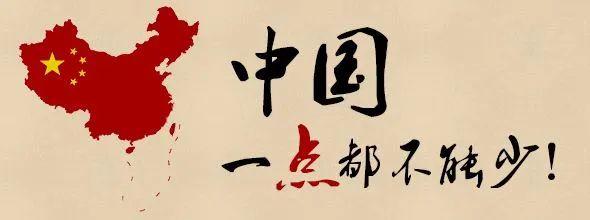 中国
一点都不能少!